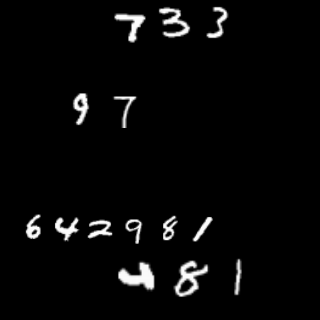 733
97
642981
481